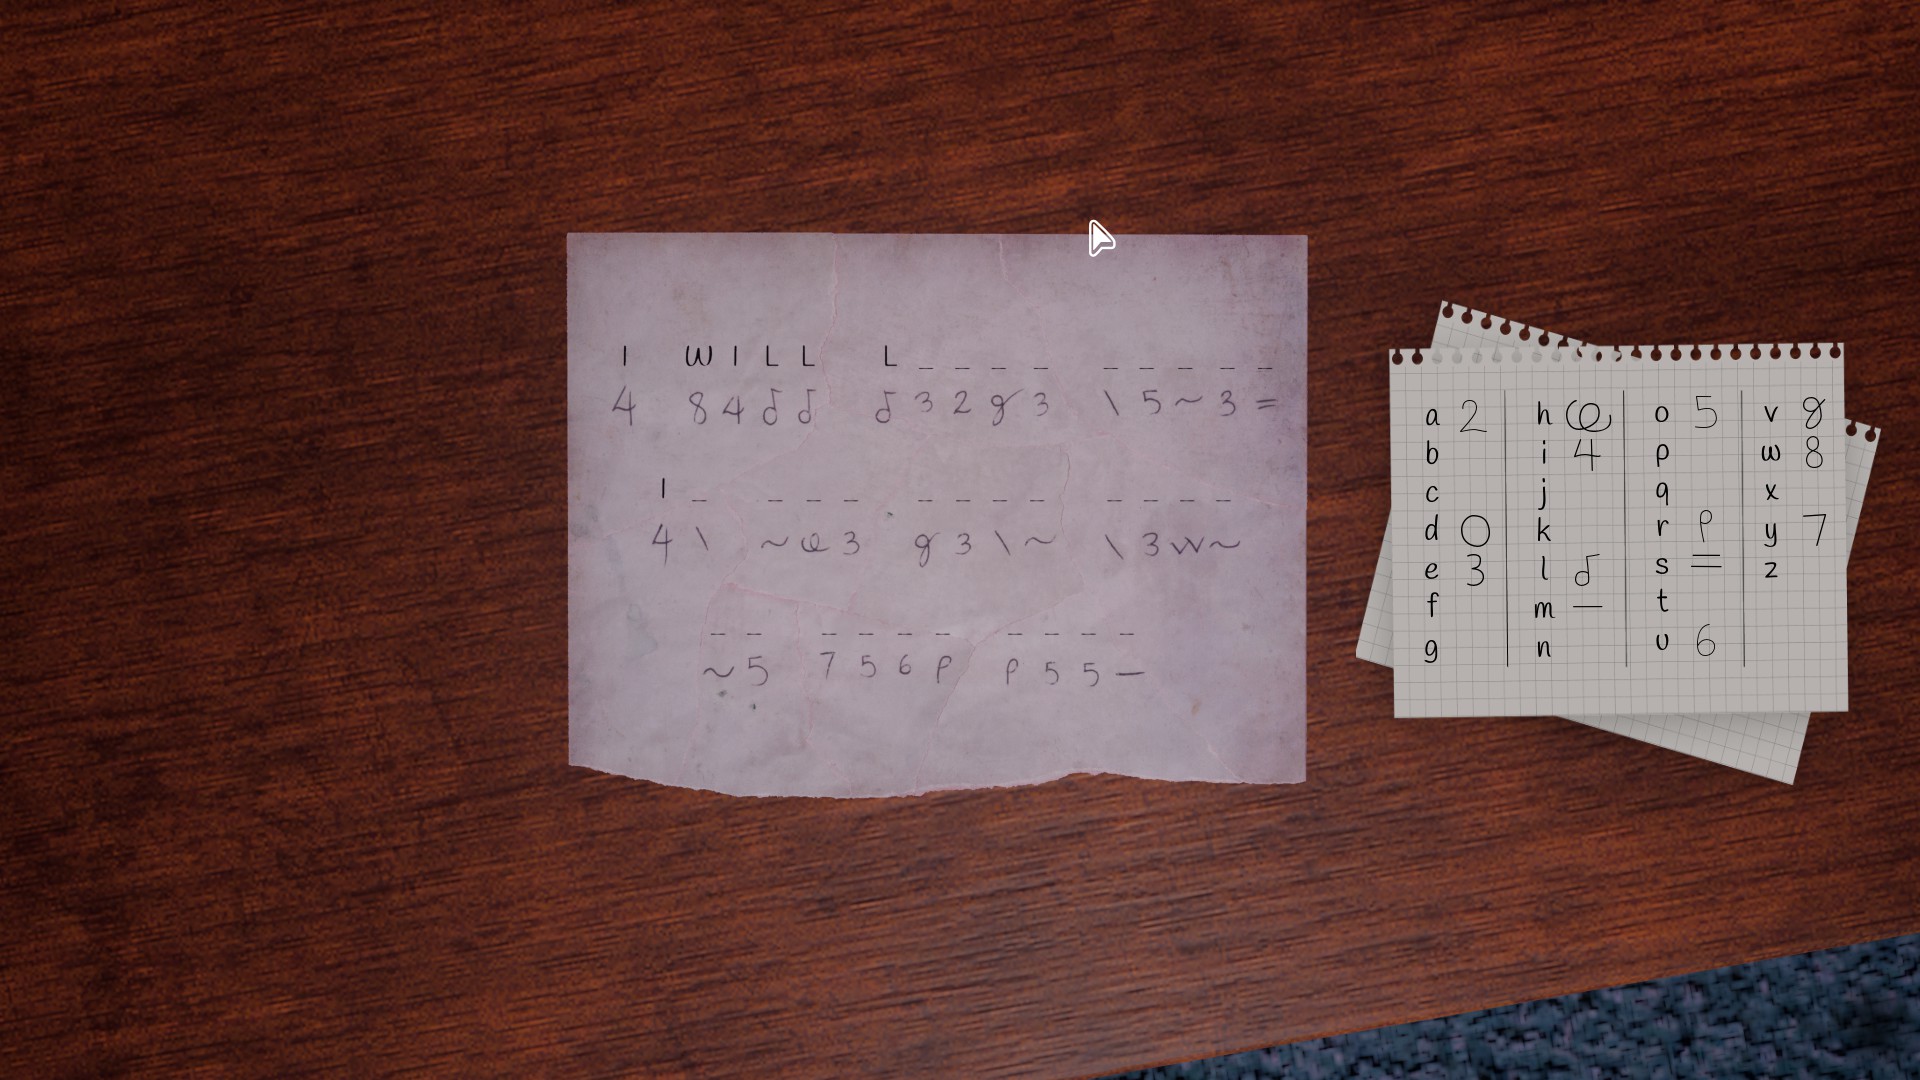 I WILL L _ _ _ _ _ _ _ _ _
4 84♂♂ ♂32g3 \5~3=
I _ _ _ _ _ _ _ _ _ _ _ _
4\ ~@3 g3\~ \3w~
_ _ _ _ _ _ _ _ _ _
~5 756ρ ρ55—
a 2 h @ o 5 v g
b i 4 p w 8
c j q x
d O k r ρ y 7
e 3 l ♂ s = z
f m — t
g n u 6